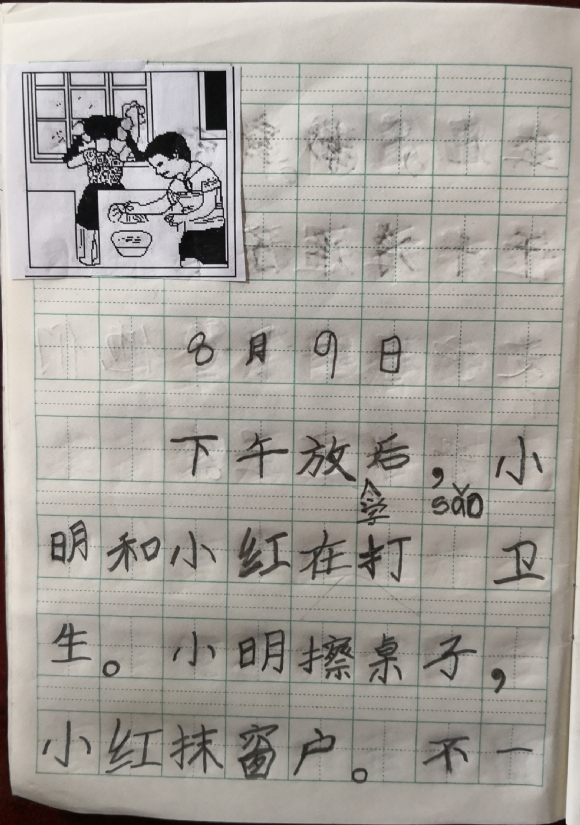 8月9日
下午放后，小
学 sǎo
明和小红在打 卫
生。小明擦桌子，
小红抹窗户。不一